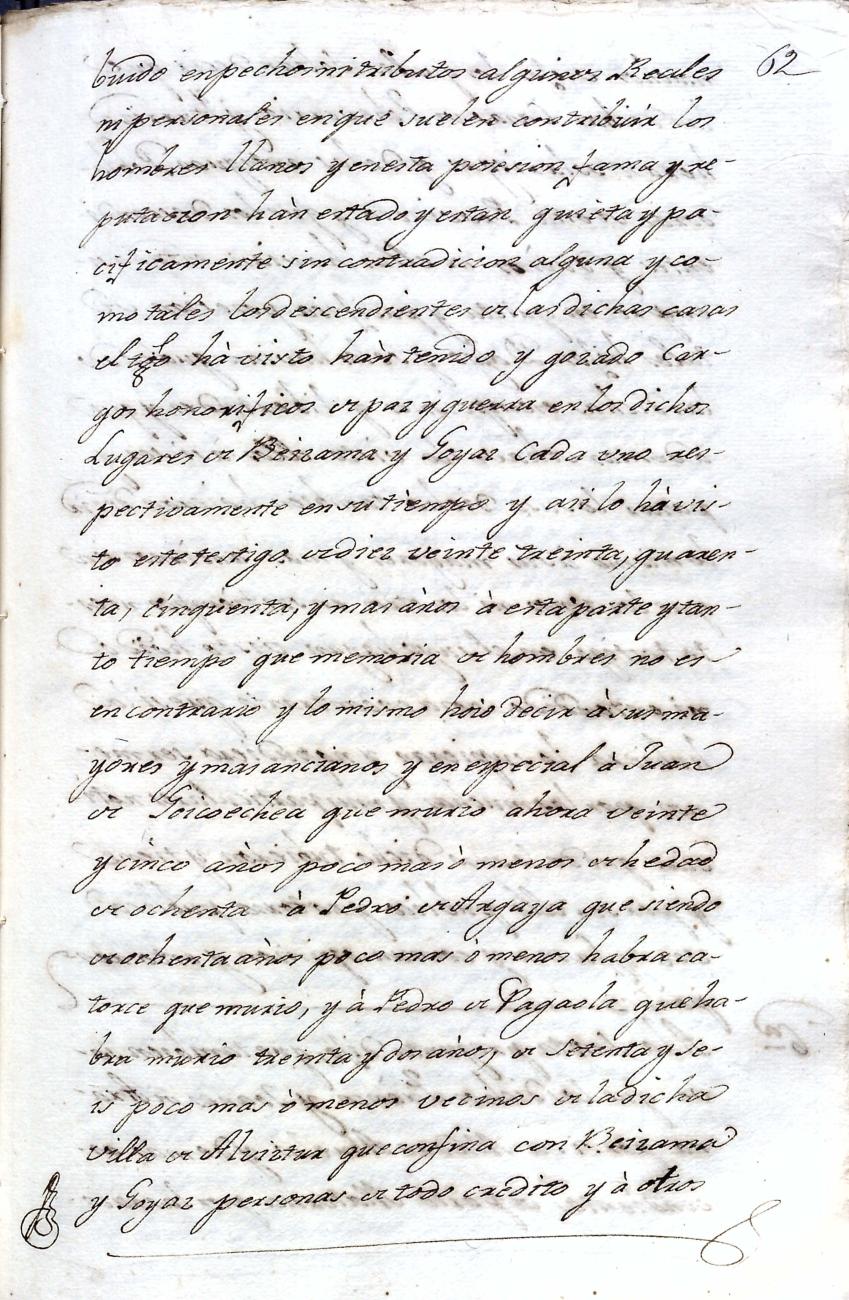 62
buido en pechos ni tributos algunos Reales
ni personales en que suelen contribuir los
hombres llanos y en esta posesion fama y re-
putacion hàn estado y estan quieta y pa-
cificamente sin contradicion alguna y co-
mo tales los descendientes de las dichas casas
el tgo hà visto hàn tenido y gozado Car-
gos honorificos de paz y guerra en los dichos
Lugares de Beizama y Goyaz Cada uno res-
pectivamente en su tiempo y asi lo hà vis-
to este testigo de diez veinte treinta, quaren-
ta, cinquenta, y mas años à esta parte y tan-
to tiempo que memoria de hombres no es
en contrario y lo mismo hoio decir à sus ma-
yores y mas ancianos y en especial à Juan
de Goicoechea que murio ahora veinte
y cinco años poco mas ò menos de hedad
de ochenta à Pedro de Argaya que siendo
de ochenta años poco mas ò menos habra ca-
torce que murio, y à Pedro de Pagaola que ha-
bra murio treinta y dos años, de Setenta y se-
is poco mas ò menos vecinos de la dicha
villa de Alviztur que confina con Beizama
y Goyaz personas de todo credito y à otros